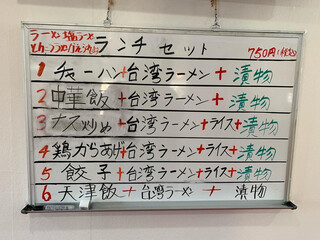 ラーメン
ランチセット 750円(税込)
1 チャーハン+台湾ラーメン+漬物
2 中華飯+台湾ラーメン+漬物
3 ナス炒め+台湾ラーメン+ライス+漬物
4 鶏からあげ+台湾ラーメン+ライス+漬物
5 餃子+台湾ラーメン+ライス+漬物
6 天津飯+台湾ラーメン+漬物